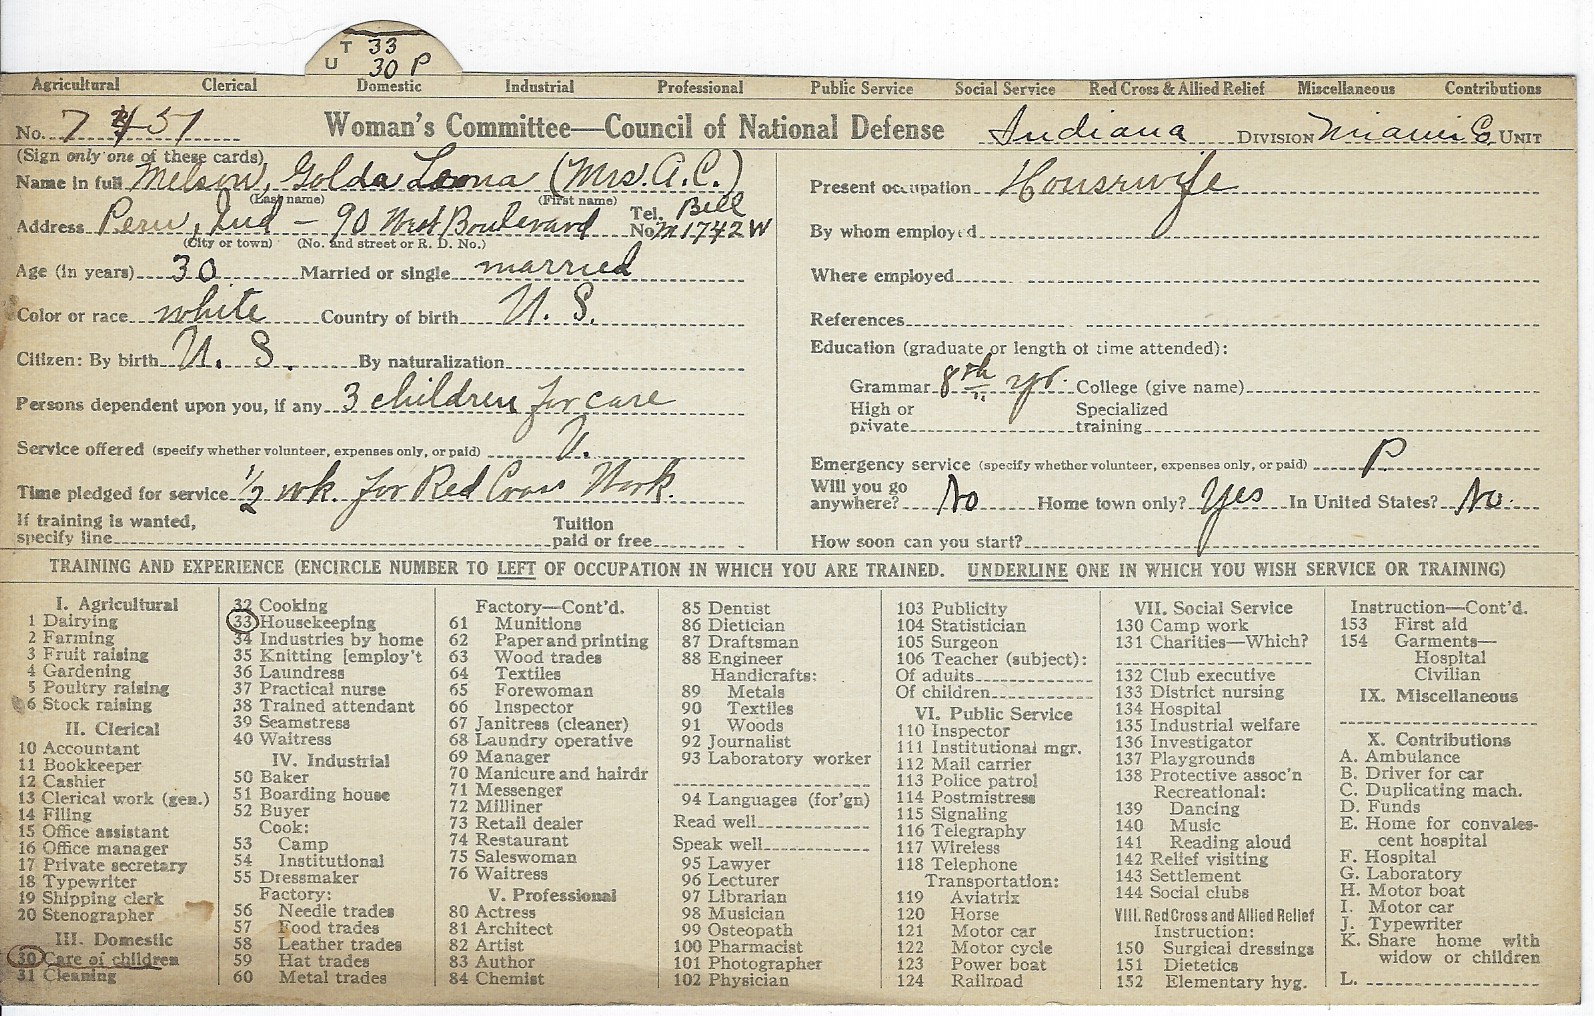 T 33
U 30 P
Agricultural Clerical Domestic Industrial Professional Public Service Social Service Red Cross & Allied Relief Miscellaneous Contributions
No. 7 51 Woman's Committee—Council of National Defense Indiana DIVISION Miami Co UNIT
(Sign only one of these cards)
Name in full Melson, Golda Leona (Mrs. A.C.)
(Last name) (First name)
Address Peru, Ind — 90 West Boulevard Tel. No. Bell M1742W
(City or town) (No. and street or R. D. No.)
Age (in years) 30 Married or single married
Color or race white Country of birth U. S.
Citizen: By birth U. S. By naturalization
Persons dependent upon you, if any 3 children for care
Service offered (specify whether volunteer, expenses only, or paid) V.
Time pledged for service 1/2 wk. for Red Cross Work.
If training is wanted, specify line Tuition paid or free
Present occupation Housewife
By whom employed
Where employed
References
Education (graduate or length of time attended):
Grammar 8th yr. College (give name)
High or private Specialized training
Emergency service (specify whether volunteer, expenses only, or paid) P
Will you go anywhere? No Home town only? Yes In United States? No.
How soon can you start?
TRAINING AND EXPERIENCE (ENCIRCLE NUMBER TO LEFT OF OCCUPATION IN WHICH YOU ARE TRAINED. UNDERLINE ONE IN WHICH YOU WISH SERVICE OR TRAINING)
I. Agricultural
1 Dairying
2 Farming
3 Fruit raising
4 Gardening
5 Poultry raising
6 Stock raising
II. Clerical
10 Accountant
11 Bookkeeper
12 Cashier
13 Clerical work (gen.)
14 Filing
15 Office assistant
16 Office manager
17 Private secretary
18 Typewriter
19 Shipping clerk
20 Stenographer
III. Domestic
30 Care of children
31 Cleaning
32 Cooking
33 Housekeeping
34 Industries by home
35 Knitting [employ't
36 Laundress
37 Practical nurse
38 Trained attendant
39 Seamstress
40 Waitress
IV. Industrial
50 Baker
51 Boarding house
52 Buyer
Cook:
53 Camp
54 Institutional
55 Dressmaker
Factory:
56 Needle trades
57 Food trades
58 Leather trades
59 Hat trades
60 Metal trades
Factory—Cont'd.
61 Munitions
62 Paper and printing
63 Wood trades
64 Textiles
65 Forewoman
66 Inspector
67 Janitress (cleaner)
68 Laundry operative
69 Manager
70 Manicure and hairdr
71 Messenger
72 Milliner
73 Retail dealer
74 Restaurant
75 Saleswoman
76 Waitress
V. Professional
80 Actress
81 Architect
82 Artist
83 Author
84 Chemist
85 Dentist
86 Dietician
87 Draftsman
88 Engineer
Handicrafts:
89 Metals
90 Textiles
91 Woods
92 Journalist
93 Laboratory worker
94 Languages (for'gn)
Read well
Speak well
95 Lawyer
96 Lecturer
97 Librarian
98 Musician
99 Osteopath
100 Pharmacist
101 Photographer
102 Physician
103 Publicity
104 Statistician
105 Surgeon
106 Teacher (subject):
Of adults
Of children
VI. Public Service
110 Inspector
111 Institutional mgr.
112 Mail carrier
113 Police patrol
114 Postmistress
115 Signaling
116 Telegraphy
117 Wireless
118 Telephone
Transportation:
119 Aviatrix
120 Horse
121 Motor car
122 Motor cycle
123 Power boat
124 Railroad
VII. Social Service
130 Camp work
131 Charities—Which?
132 Club executive
133 District nursing
134 Hospital
135 Industrial welfare
136 Investigator
137 Playgrounds
138 Protective assoc'n
Recreational:
139 Dancing
140 Music
141 Reading aloud
142 Relief visiting
143 Settlement
144 Social clubs
VIII. Red Cross and Allied Relief
Instruction:
150 Surgical dressings
151 Dietetics
152 Elementary hyg.
Instruction—Cont'd.
153 First aid
154 Garments—
Hospital
Civilian
IX. Miscellaneous
X. Contributions
A. Ambulance
B. Driver for car
C. Duplicating mach.
D. Funds
E. Home for convales-
cent hospital
F. Hospital
G. Laboratory
H. Motor boat
I. Motor car
J. Typewriter
K. Share home with
widow or children
L.